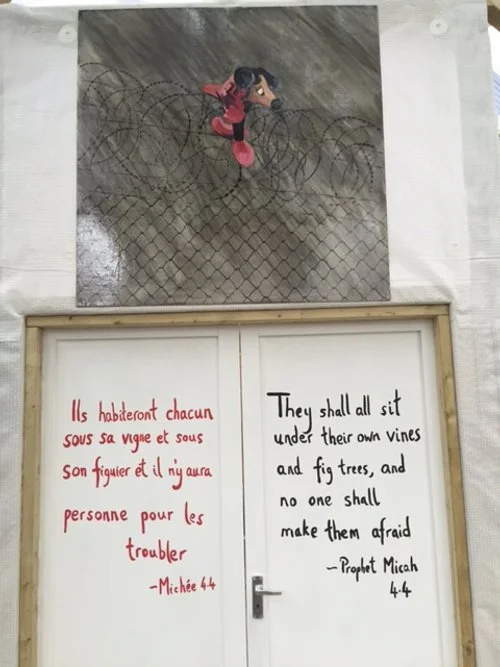 Ils habiteront chacun
sous sa vigne et sous
son figuier et il n'y aura
personne pour les
troubler
-Michée 4.4
They shall all sit
under their own vines
and fig trees, and
no one shall
make them afraid
-Prophet Micah
4.4